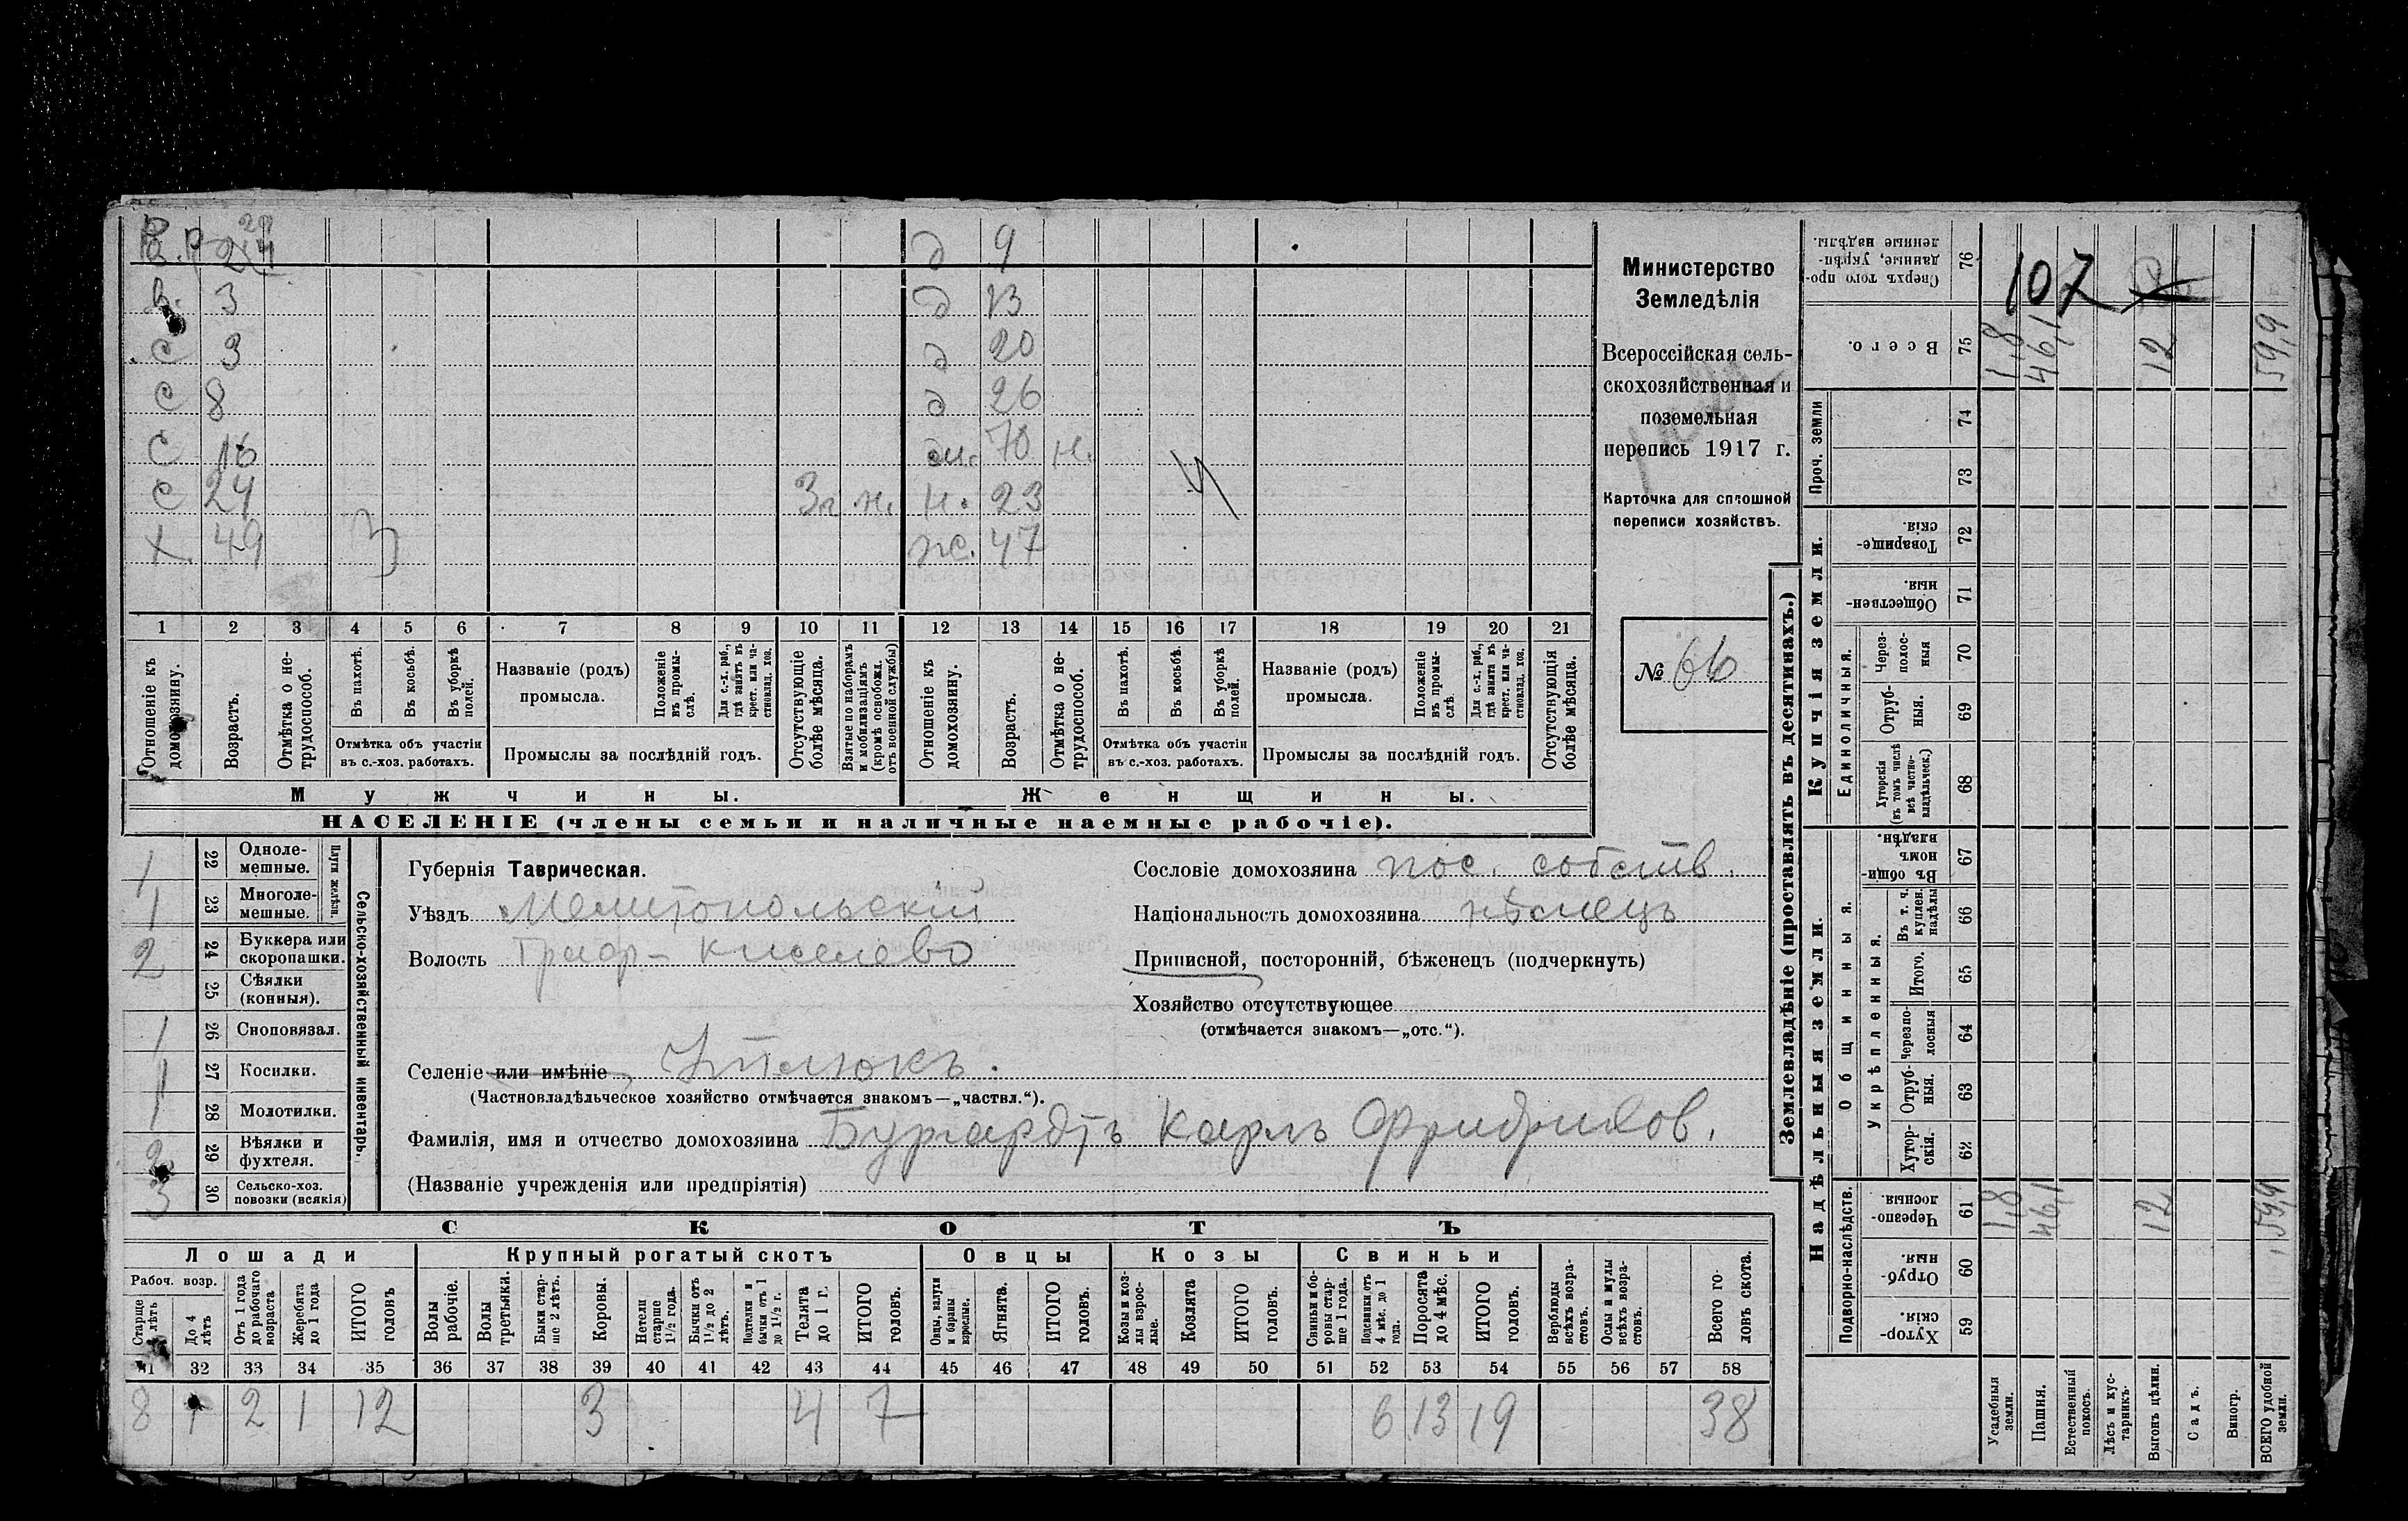 24
В. 3
С 3
С 8
С 16
С 24 Зг. н.
Х. 49 З
д 9
д 13
д 20
д 26
м. 70 н.
н. 23
ж. 47
1 2 3 4 5 6 7 8 9 10 11 12 13 14 15 16 17 18 19 20 21
Отношеніе къ домохозяину.
Возрастъ.
Отмѣтка о не-трудоспособ.
Въ пахотѣ.
Въ косьбѣ.
Въ уборкѣ полей.
Отмѣтка объ участіи
въ с.-хоз. работахъ.
Названіе (родъ)
промысла.
Положеніе въ промы-слѣ.
Для с.-х. раб., гдѣ занятъ въ крест. или ча-стновлад. хоз.
Промыслы за послѣдній годъ.
Отсутствующіе болѣе мѣсяца.
Взятые по наборамъ и мобилизаціямъ (кромѣ освобожд. отъ военной службы)
Отношеніе къ домохозяину.
Возрастъ.
Отмѣтка о не-трудоспособ.
Въ пахотѣ.
Въ косьбѣ.
Въ уборкѣ полей.
Отмѣтка объ участіи
въ с.-хоз. работахъ.
Названіе (родъ)
промысла.
Положеніе въ промы-слѣ.
Для с.-х. раб., гдѣ занята въ крест. или ча-стновлад. хоз.
Промыслы за послѣдній годъ.
Отсутствующія болѣе мѣсяца.
Мужчины.
Женщины.
НАСЕЛЕНІЕ (члены семьи и наличные наемные рабочіе).
Министерство
Земледѣлія
Всероссійская сель-
скохозяйственная и
поземельная
перепись 1917 г.
Карточка для сплошной
переписи хозяйствъ.
№ 66
1 22 Одноле-мешные.
1 23 Многоле-мешные.
Плуги желѣзн.
2 24 Буккера или скоропашки.
25 Сѣялки (конныя).
1 26 Сноповязал.
1 27 Косилки.
1 28 Молотилки.
2 29 Вѣялки и фухтеля.
3 30 Сельско-хоз. повозки (всякія)
Сельско-хозяйственный инвентарь.
Губернія Таврическая.
Уѣздъ Мелитопольскій
Волость Граф-Киселево
Сословіе домохозяина пос. собств.
Національность домохозяина нѣмецъ
Приписной, посторонній, бѣженецъ (подчеркнуть)
Хозяйство отсутствующее
(отмѣчается знакомъ—„отс.“).
Селеніе или имѣніе Итлюкъ.
(Частновладѣльческое хозяйство отмѣчается знакомъ—„частвл.“).
Фамилія, имя и отчество домохозяина Бургардтъ Карлъ Фридрихов.
(Названіе учрежденія или предпріятія)
СКОТЪ
Лошади
Крупный рогатый скотъ
Овцы
Козы
Свиньи
Рабоч. возр.
Старше лѣтъ
До 4 лѣтъ
Отъ 1 года до рабочаго возраста
Жеребята до 1 года
ИТОГО головъ
Волы рабочіе.
Волы третьяки.
Быки стар-ше 2 лѣтъ.
Коровы.
Нетели старше 1½ года.
Бычки отъ 1½ до 2 лѣтъ.
Подтелки и бычки отъ 1 до 1½ г.
Телята до 1 г.
ИТОГО головъ.
Овцы, валухи и бараны взрослые.
Ягнята.
ИТОГО головъ.
Козы и коз-лы взрос-лые.
Козлята
ИТОГО головъ.
Свиньи и бо-ровы стар-ше 1 года.
Подсвинки отъ 4 мѣс. до 1 года.
Поросята до 4 мѣс.
ИТОГО головъ.
Верблюды всѣхъ возра-стовъ.
Ослы и мулы всѣхъ возра-стовъ.
Всего го-ловъ скота.
31 32 33 34 35 36 37 38 39 40 41 42 43 44 45 46 47 48 49 50 51 52 53 54 55 56 57 58
8 1 2 1 12 3 4 7 6 13 19 38
Землевладѣніе (проставлять въ десятинахъ.)
107
76 Сверхъ того про-данные, укрѣп-ленные надѣлы.
75 Всего. 1,8 46,1 12 59,9
Проч. земли
74
73
Купчія земли.
72 Товарище-скія.
71 Обществен-ныя.
Единоличныя.
70 Через-полос-ныя
69 Отруб-ныя.
68 Хуторскія (въ томъ числѣ всѣ частно-владѣльческ.)
Надѣльныя земли.
Общинныя.
67 Въ общи-номъ владѣн.
Укрѣпленныя.
66 Въ т. ч. куплен. надѣлы
65 Итого.
64 Черезпо-лосныя
63 Отруб-ныя.
62 Хутор-скія.
Подворно-наслѣдств.
61 Черезпо-лосныя. 1,8 46,1 12 59,9
60 Отруб-ныя.
59 Хутор-скія.
Усадебныя земли.
Пашня.
Естественный покосъ.
Лѣсъ и кус-тарникъ.
Выгонъ цѣлин.
Садъ.
Виногр.
ВСЕГО удобной земли.